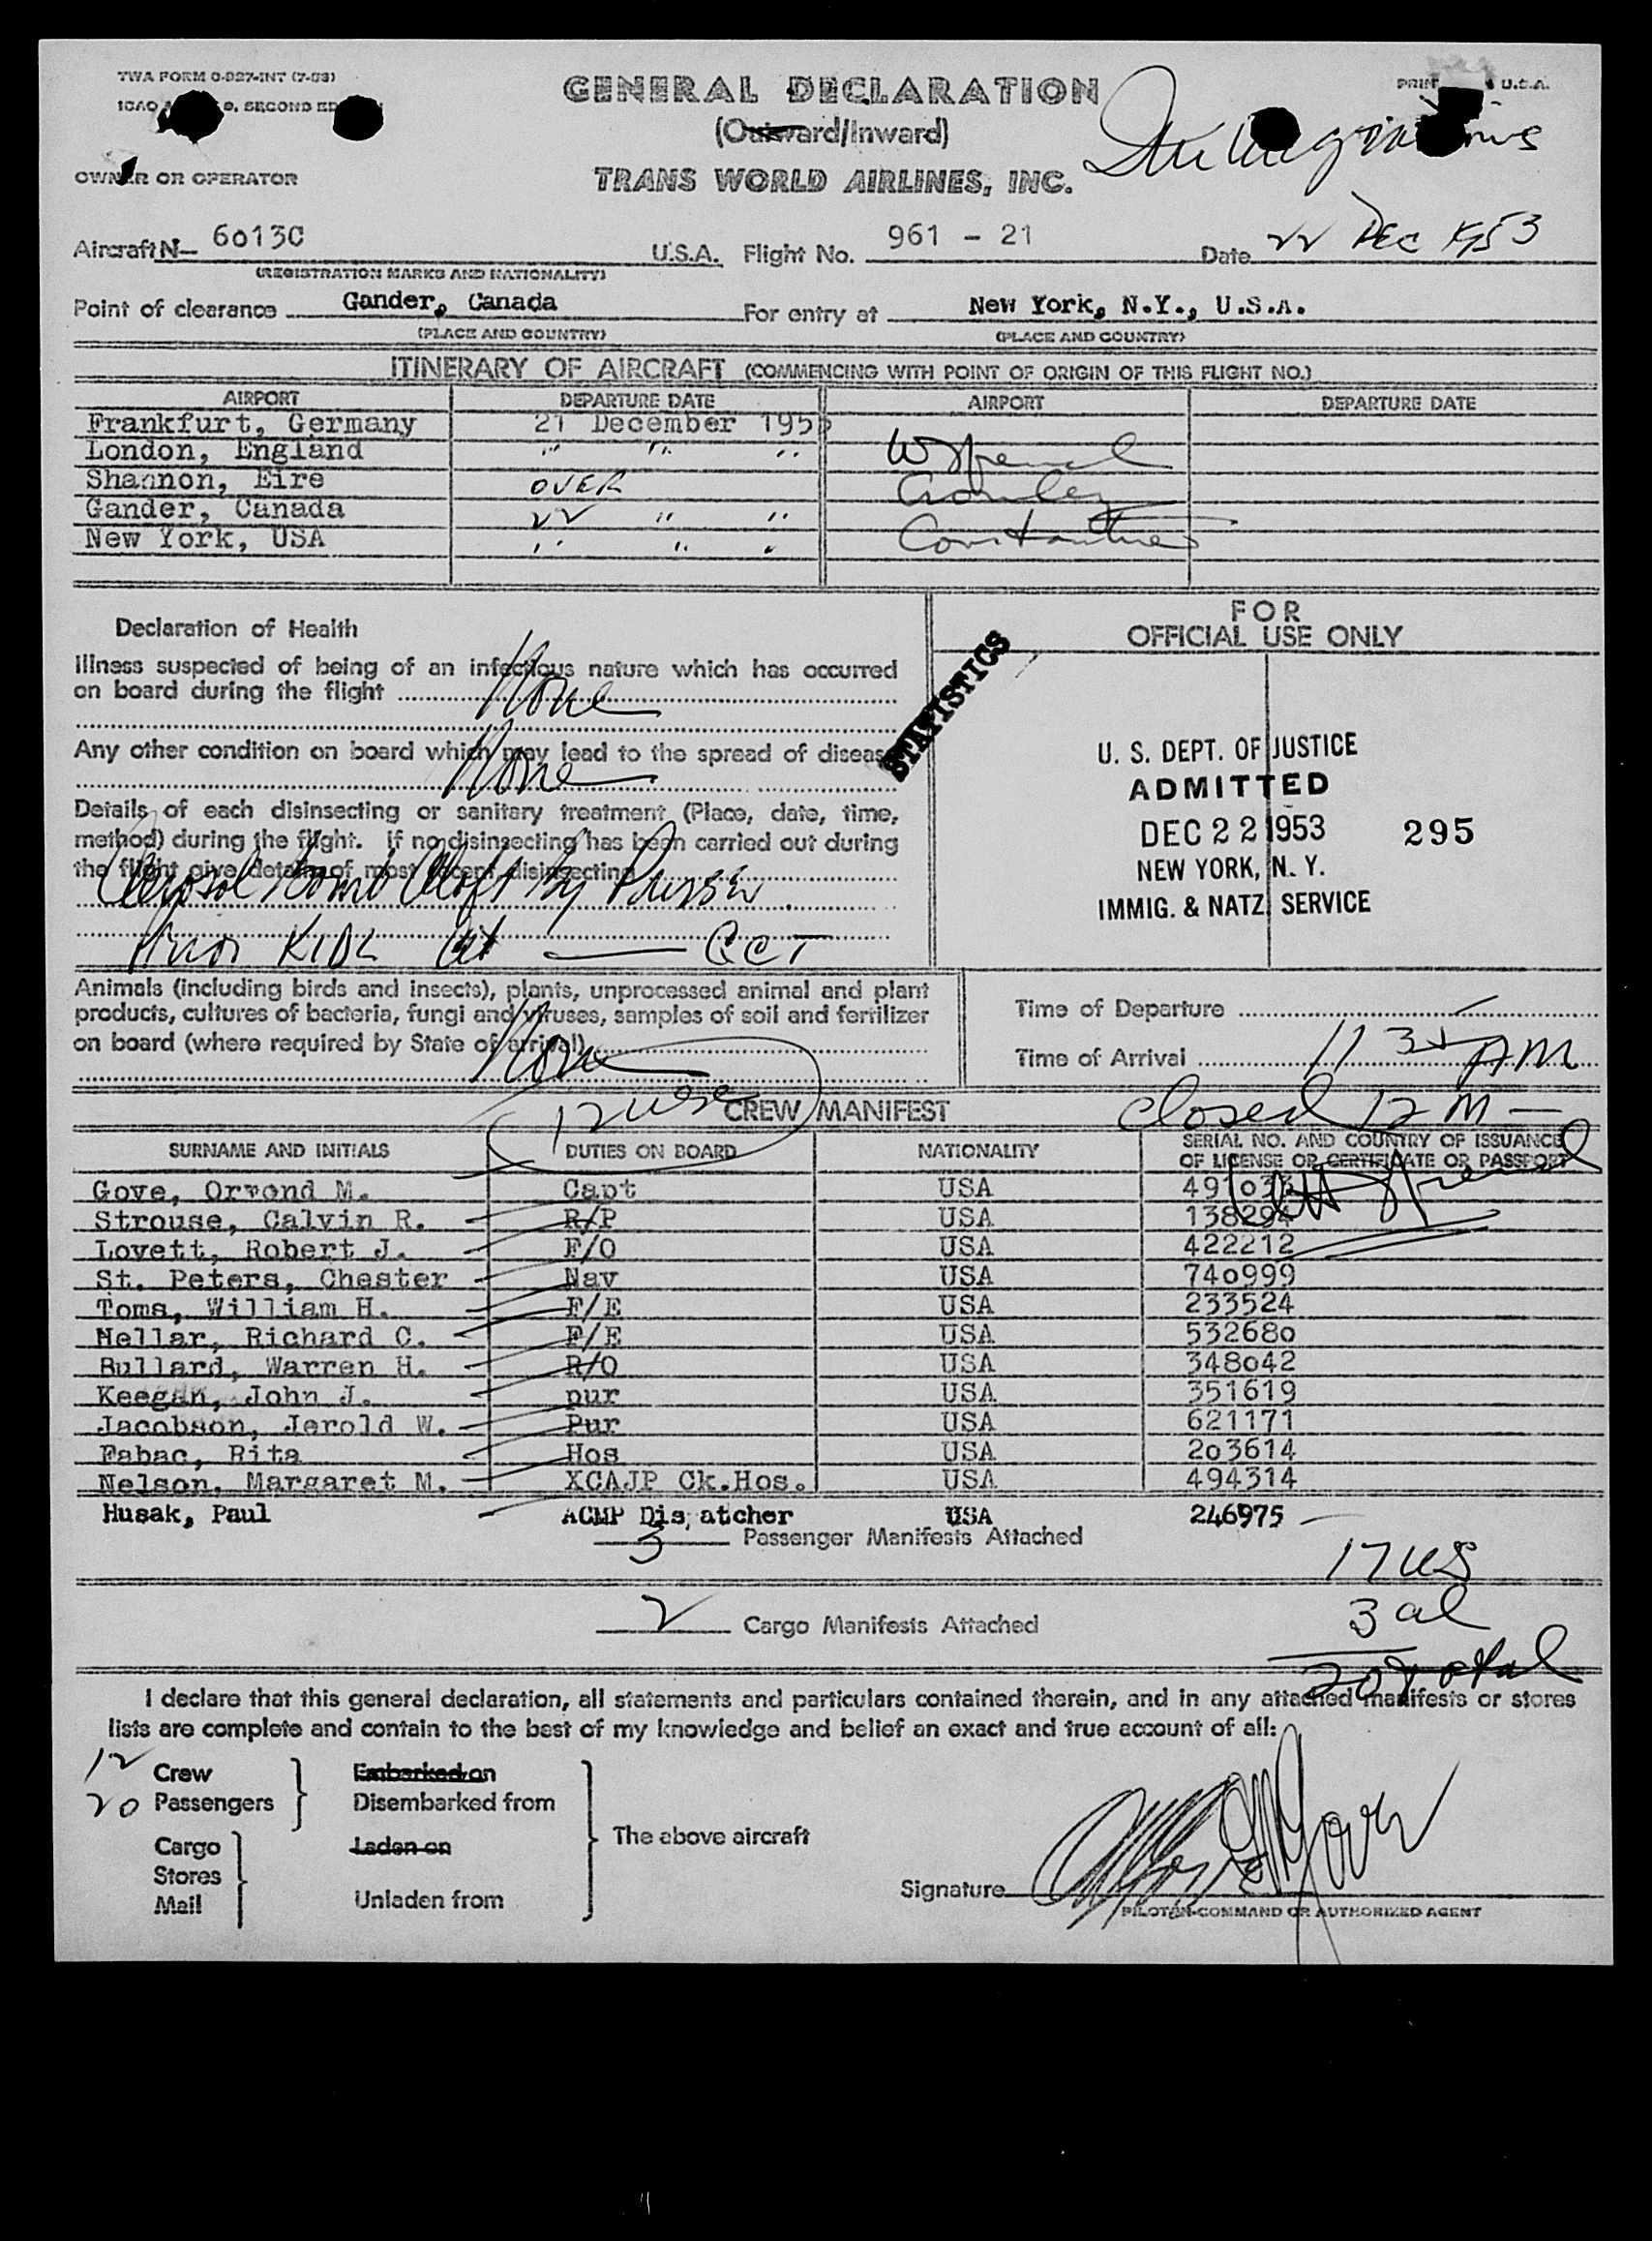 TWA FORM O-927-INT (7-53)
GENERAL DECLARATION
U.S.A.
SECOND
(Outward/Inward)
OWNER OR OPERATOR
TRANS WORLD AIRLINES, INC.
Aircraft N- 6013C U.S.A. Flight No. 961 - 21 Date 22 Dec 1953
(REGISTRATION MARKS AND NATIONALITY)
Point of clearance Gander, Canada For entry at New York, N.Y., U.S.A.
(PLACE AND COUNTRY) (PLACE AND COUNTRY)
ITINERARY OF AIRCRAFT (COMMENCING WITH POINT OF ORIGIN OF THIS FLIGHT NO.)
AIRPORT DEPARTURE DATE AIRPORT DEPARTURE DATE
Frankfurt, Germany 21 December 1953
London, England " " "
Shannon, Eire OVER
Gander, Canada 22 " "
New York, USA " " "
Declaration of Health
Illness suspected of being of an infectious nature which has occurred
on board during the flight None
Any other condition on board which may lead to the spread of disease
None
Details of each disinsecting or sanitary treatment (Place, date, time,
method) during the flight. If no disinsecting has been carried out during
the flight give details of most recent disinsecting
Aerosol Bomb Aloft By Purser
Prior KIDL at — GCT
STATISTICS
FOR
OFFICIAL USE ONLY
U. S. DEPT. OF JUSTICE
ADMITTED
DEC 22 1953 295
NEW YORK, N. Y.
IMMIG. & NATZ SERVICE
Animals (including birds and insects), plants, unprocessed animal and plant
products, cultures of bacteria, fungi and viruses, samples of soil and fertilizer
on board (where required by State of arrival)
None
Time of Departure
Time of Arrival 11 35 AM
12 USC CREW MANIFEST closed 12 M —
SURNAME AND INITIALS DUTIES ON BOARD NATIONALITY SERIAL NO. AND COUNTRY OF ISSUANCE
OF LICENSE OR CERTIFICATE OR PASSPORT
Gove, Orvond M. Capt USA
Strouse, Calvin R. R/P USA 138294
Lovett, Robert J. F/O USA 422212
St. Peters, Chester Nav USA 740999
Toms, William H. F/E USA 233524
Mellar, Richard C. F/E USA 532680
Bullard, Warren H. R/O USA 348042
Keegan, John J. pur USA 351619
Jacobson, Jerold W. Pur USA 621171
Fabac, Rita Hos USA 203614
Nelson, Margaret M. XCAJP Ck.Hos. USA 494314
Husak, Paul ACMP Dis atcher USA 246975
3 Passenger Manifests Attached
17 US
2 Cargo Manifests Attached
3 al
20 Total
I declare that this general declaration, all statements and particulars contained therein, and in any attached manifests or stores
lists are complete and contain to the best of my knowledge and belief an exact and true account of all:
12 Crew Embarked on
20 Passengers Disembarked from
The above aircraft
Cargo Laden on
Stores
Mail Unladen from
Signature
PILOT-IN-COMMAND OR AUTHORIZED AGENT